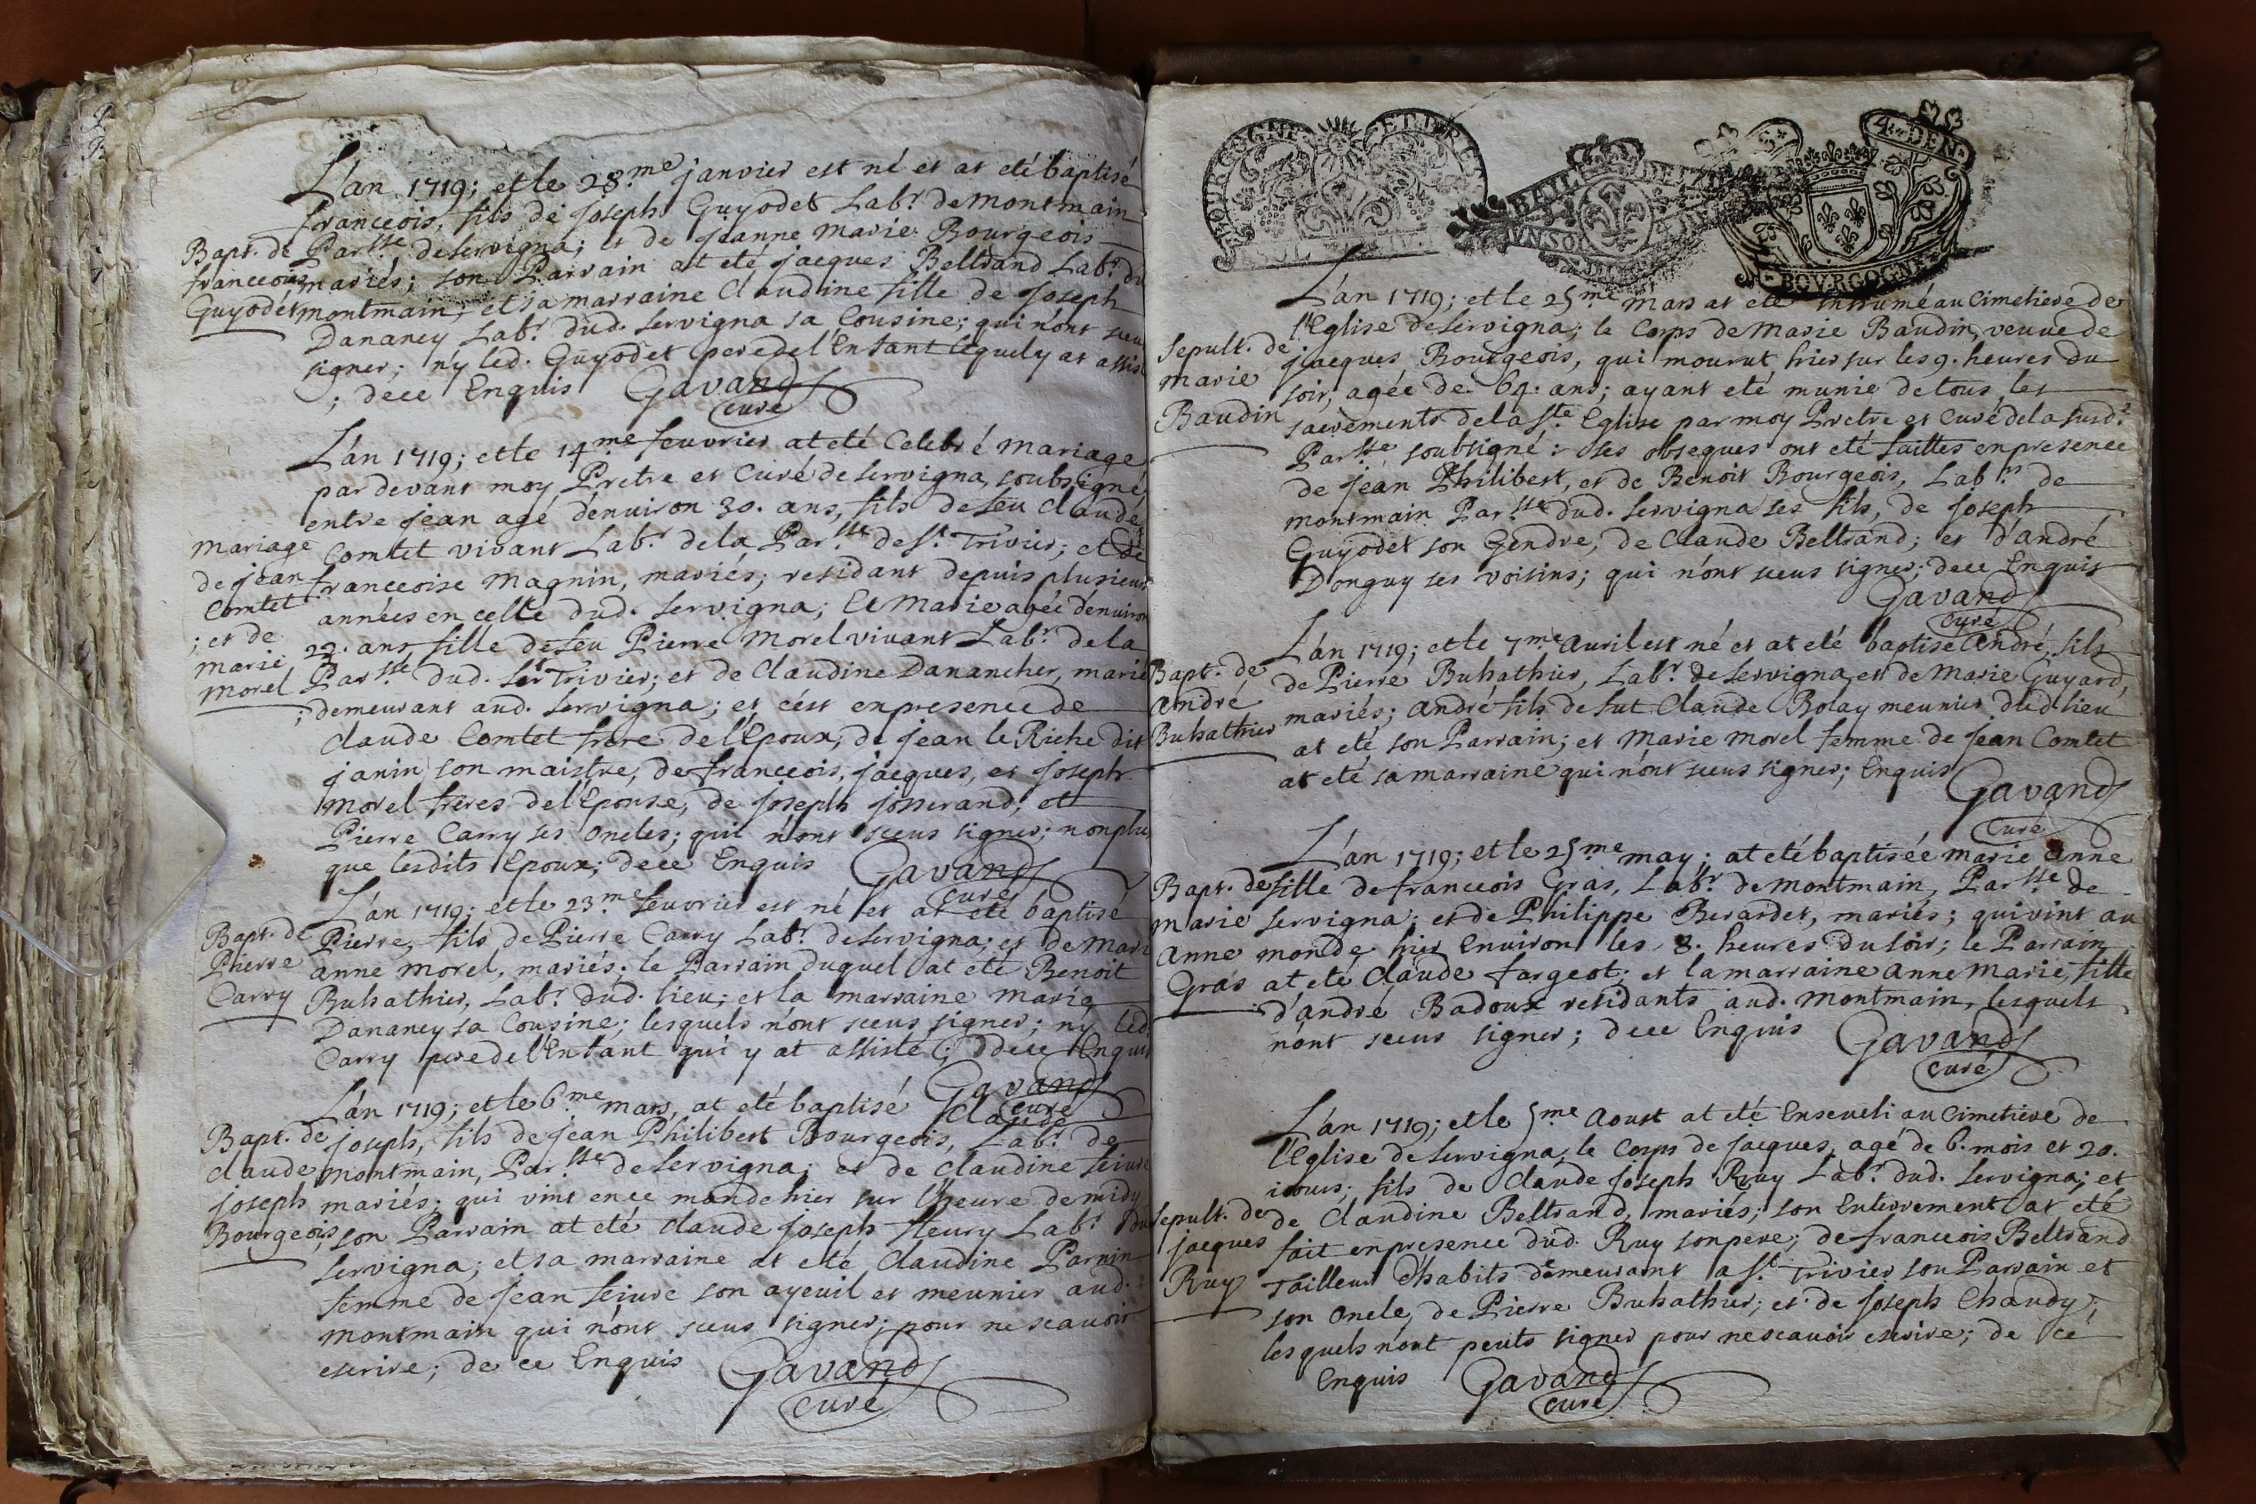 L'an 1719; et le 28.me janvier est né et at eté baptisé
franceois, fils de joseph Guyodet Lab.r de montmain
Par.sse de servigna; et de jeanne marie Bourgeois
mariés; son Parrain at eté jacques Beltrand Lab.r du
montmain; et sa marraine Claudine fille de joseph
Dananey Lab.r dud. servigna sa Cousine; qui n'ont sceus
signer; n'y led. Guyodet pere de l'Enfant lequel y at assisté
; de ce Enquis Gavand
curé
Bapt. de
franceois
Guyodet
L'an 1719; et le 14.me feuvrier at eté Celebré mariage
par devant moy Pretre et Curé de servigna, soubsigné
entre jean agé d'enuiron 30. ans, fils de feu Claude
Comtet vivant Lab.r de la Par.sse de s.t Trivier; et de
franceoise magnin, mariés; residant depuis plusieurs
années en celle dud. servigna; Et Marie agée d'enuiron
22. ans, fille de feu Pierre morel vivant Lab.r de la
Par.sse dud. s.t Trivier; et de Claudine Danancher, mariés
; demeurant aud. servigna; et c'est en presence de
Claude Comtet frere de l'Epoux, de jean le Riche dit
janin son maistre, de franceois, jacques, et joseph
morel freres de l'Epouse, de joseph josserand, et
Pierre Carry ses oncles; qui n'ont sceus signer; non plus
que lesdits Epoux; de ce Enquis Gavand
curé
mariage
de jean
Comtet
; et de
marie
morel
L'an 1719; et le 23.me feuvrier est né et at eté baptisé
Pierre, fils de Pierre Carry Lab.r de servigna; et de marie
anne morel, mariés; le Parrain duquel at eté Benoit
Buhathier, Lab.r dud. lieu; et la marraine marie
Dananey sa Cousine; lesquels n'ont sceus signer; n'y led.
Carry pere de l'Enfant qui y at assisté; de ce Enquis
Gavand
curé
Bapt. de
Pierre
Carry
L'an 1719; et le 6.me mars, at eté baptisé Claude
joseph, fils de jean Philibert Bourgeois, Lab.r de
montmain, Par.sse de servigna; et de Claudine feiure
mariés; qui vint en ce monde hier sur l'heure de midy
; son Parrain at eté Claude joseph fleury Lab.r du
servigna; et sa marraine at eté Claudine Parnin
femme de jean feiure son ayeuil et meunier aud.
montmain qui n'ont sceus signer; pour ne scauoir
escrire; de ce Enquis Gavand
curé
Bapt. de
Claude
joseph
Bourgeois
BOURGOGNE
BAIL
UN SOL
4. DEN.
BOURGOGNE
L'an 1719; et le 25.me mars at eté inhumé au Cimetiere de
l'Eglise de servigna; le Corps de marie Baudin, veuue de
jacques Bourgeois, qui mourut hier sur les 9. heures du
soir, agée de 64. ans; ayant eté munie de tous les
sacrements de la S.te Eglise par moy Pretre et Curé de la susd.
Par.sse soubsigné: ses obseques ont eté faittes en presence
de jean Philibert, et de Benoit Bourgeois, Lab.rs de
montmain Par.sse dud. servigna ses fils, de joseph
Guyodet son Gendre, de Claude Beltrand; et d'andré
Donguy ses voisins; qui n'ont sceus signer; de ce Enquis
Gavand
curé
sepult. de
marie
Baudin
L'an 1719; et le 7.me auril est né et at eté baptisé André, fils
de Pierre Buhathier, Lab.r de servigna, et de Marie Guyard,
mariés; André fils de fut Claude Rolay meunier dud. lieu
at eté son Parrain; et marie morel femme de jean Comtet
at eté sa marraine qui n'ont sceus signer; Enquis
Gavand
curé
Bapt. de
André
Buhathier
L'an 1719; et le 25.me may; at eté baptisée marie anne
fille de franceois Gras, Lab.r de montmain, Par.sse de
servigna; et de Philippe Berardet, mariés; qui vint au
monde hier Enuiron les 8. heures du soir; le Parrain
at eté Claude fargeot; et la marraine anne marie, fille
d'andré Badoux residants aud. montmain, lesquels
n'ont sceus signer; de ce Enquis Gavand
curé
Bapt. de
marie
anne
Gras
L'an 1719; et le 5.me Aoust at eté Enseueli au Cimetiere de
l'Eglise de servigna, le Corps de jacques, agé de 6. mois et 20.
iours; fils de Claude joseph Ruy Lab.r dud. servigna; et
de Claudine Beltrand, mariés; son Enterrement at eté
fait en presence dud. Ruy son pere; de franceois Beltrand
Tailleur d'habits demeurant a s.t Trivier son Parrain et
son oncle, de Pierre Buhathier; et de joseph Chaudy;
lesquels n'ont peuts signer pour ne scauoir escrire; de ce
Enquis Gavand
curé
sepult. de
jacques
Ruy